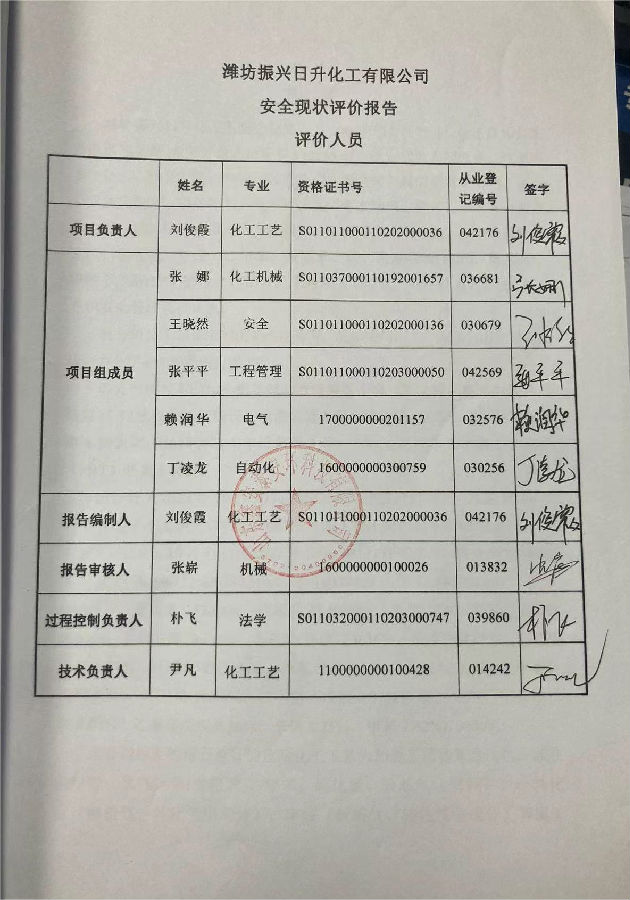 潍坊振兴日升化工有限公司
安全现状评价报告
评价人员
姓名 专业 资格证书号 从业登记编号 签字
项目负责人 刘俊霞 化工工艺 S011011000110202000036 042176 刘俊霞
项目组成员 张 娜 化工机械 S011037000110192001657 036681 张娜
王晓然 安全 S011011000110202000136 030679
张平平 工程管理 S011011000110203000050 042569 张平平
赖润华 电气 1700000000201157 032576 赖润华
丁凌龙 自动化 1600000000300759 030256 丁凌龙
报告编制人 刘俊霞 化工工艺 S011011000110202000036 042176 刘俊霞
报告审核人 张崭 机械 1600000000100026 013832
过程控制负责人 朴飞 法学 S011032000110203000747 039860 朴飞
技术负责人 尹凡 化工工艺 1100000000100428 014242